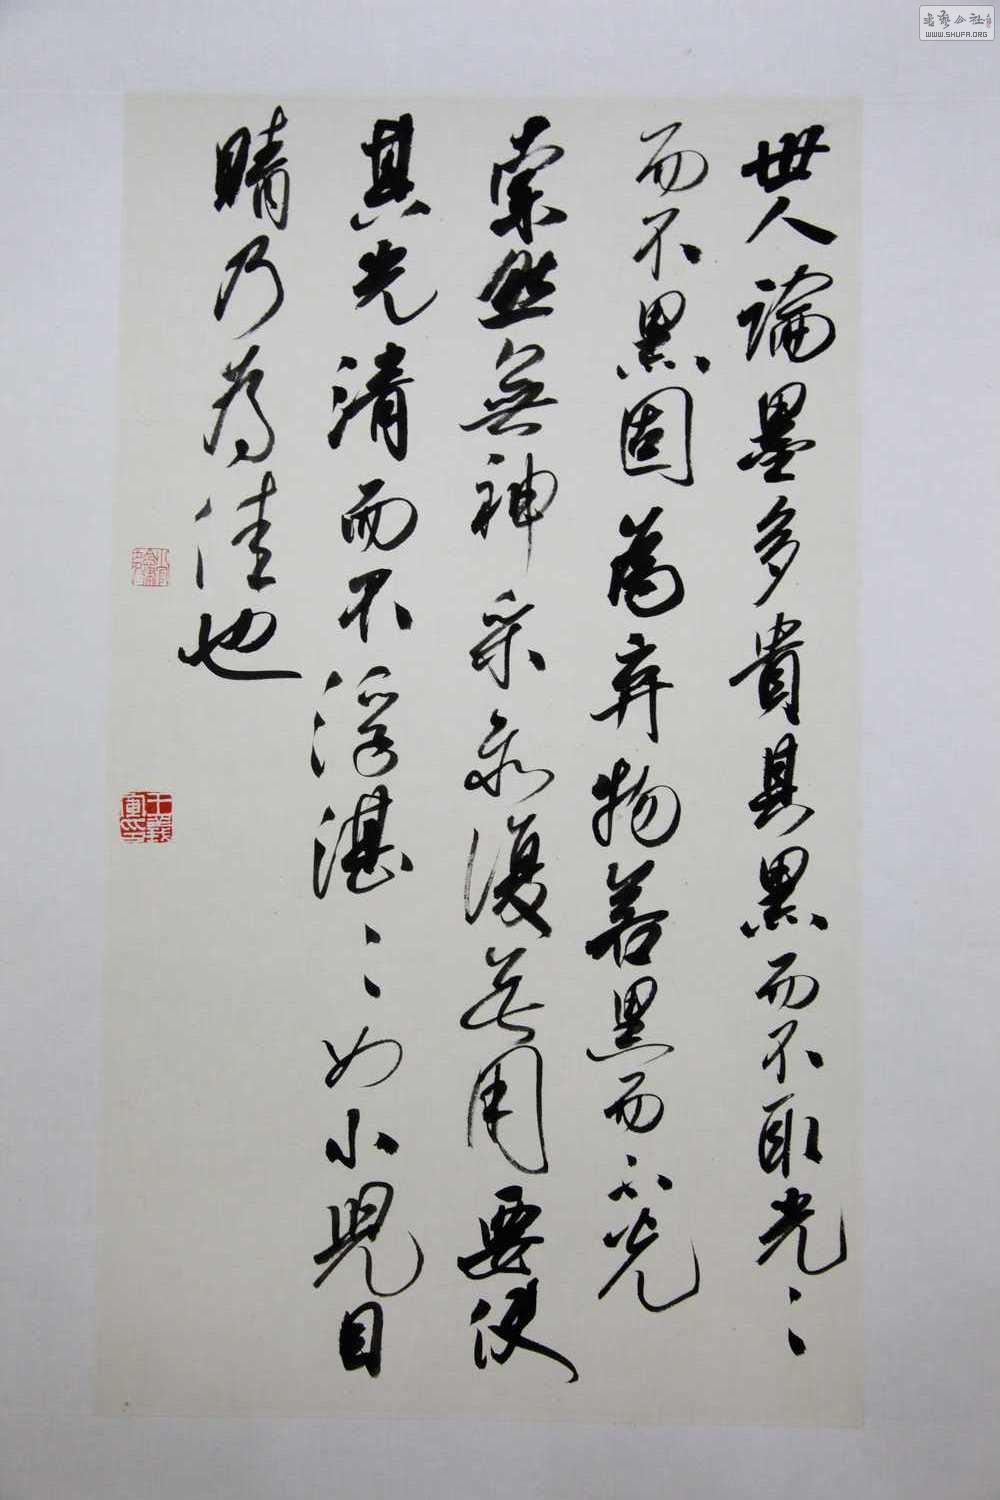 世人論墨多貴其黑而不取光〻
而不黑固為棄物若黑而不光
索然無神采亦復無用要使
其光清而不浮湛〻如小兒目
睛乃為佳也
WWW.SHUFA.ORG